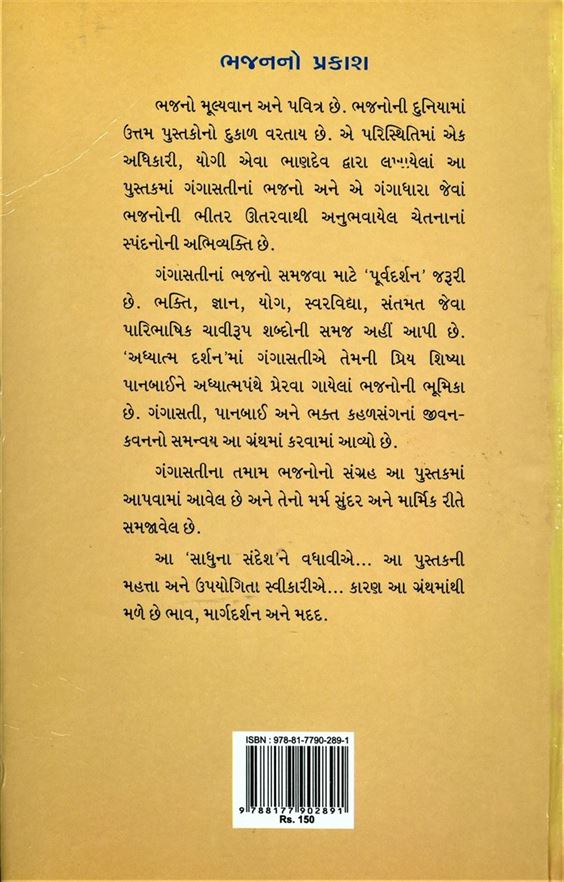 ભજનનો પ્રકાશ
ભજનો મૂલ્યવાન અને પવિત્ર છે. ભજનોની દુનિયામાં
ઉત્તમ પુસ્તકોનો દુકાળ વરતાય છે. એ પરિસ્થિતિમાં એક
અધિકારી, યોગી એવા ભાણદેવ દ્વારા લખાયેલાં આ
પુસ્તકમાં ગંગાસતીનાં ભજનો અને એ ગંગાધારા જેવાં
ભજનોની ભીતર ઊતરવાથી અનુભવાયેલ ચેતનાનાં
સ્પંદનોની અભિવ્યક્તિ છે.
ગંગાસતીનાં ભજનો સમજવા માટે ‘પૂર્વદર્શન’ જરૂરી
છે. ભક્તિ, જ્ઞાન, યોગ, સ્વરવિદ્યા, સંતમત જેવા
પારિભાષિક ચાવીરૂપ શબ્દોની સમજ અહીં આપી છે.
‘અધ્યાત્મ દર્શન’માં ગંગાસતીએ તેમની પ્રિય શિષ્યા
પાનબાઈને અધ્યાત્મપંથે પ્રેરવા ગાયેલાં ભજનોની ભૂમિકા
છે. ગંગાસતી, પાનબાઈ અને ભક્ત કહળસંગનાં જીવન-
કવનનો સમન્વય આ ગ્રંથમાં કરવામાં આવ્યો છે.
ગંગાસતીના તમામ ભજનોનો સંગ્રહ આ પુસ્તકમાં
આપવામાં આવેલ છે અને તેનો મર્મ સુંદર અને માર્મિક રીતે
સમજાવેલ છે.
આ ‘સાધુના સંદેશ’ને વધાવીએ... આ પુસ્તકની
મહત્તા અને ઉપયોગિતા સ્વીકારીએ... કારણ આ ગ્રંથમાંથી
મળે છે ભાવ, માર્ગદર્શન અને મદદ.
ISBN : 978-81-7790-289-1
9 788177 902891
Rs. 150